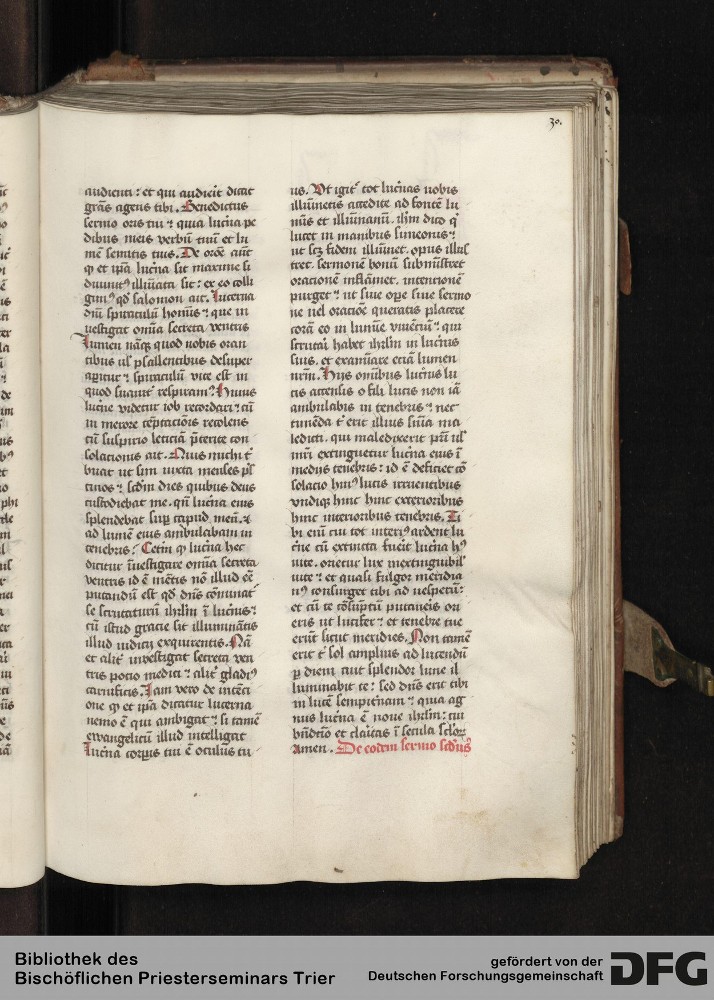 30.
audienti: et qui audierit dicat
grãs agens tibi. Benedictus
sermo oris tui ⁊ quia lucna pe
dibus meis verbũ tuũ et lu
mẽ semitis tuis. De orõe aũt
ꝙ et ip̃a lucna sit maxime si
diuinitꝰ illũiata sit: ex eo colli
gimꝰ qđ salomon ait. Lucerna
dñi spiraculũ homĩs ⁊ que in
uestigat omĩa secreta ventris
Lumen nãqꝫ quod nobis oran
tibus ul̃ psallentibus desuper
apitur ⁊ spiraculũ vite est in
quod suauit̃ respiram⁹. Huius
lucne videtur iob recordari ⁊ cũ
in merore tẽptacõis recolens
cũ suspirio leticiã p̃terite con
solacionis ait. Quis michi t̃
buat ut sim iuxta menses p̃s
tinos ⁊ scđm dies quibus deus
custodiebat me. qñ lucna eius
splendebat sup̃ caput meũ. ⁊
ad lumẽ eius ambulabam in
tenebris. Cetm̃ ꝙ lucna hec
dicitur ĩuestigare omĩa secreta
ventris id ẽ mẽtis nõ illud eẽ
putandũ est qđ dñs cõminat᷑
se scrutaturũ ihrlm̃ ĩ lucnis:
cũ istud gracie sit illuminãtis
illud iudicij exquirentis. Nã
et alit̃ investigat secreta ven
tris pocio medici ⁊ alit̃ gladiꝰ
carnificis. Iam vero de intẽci
one ꝙ et ip̃a dicatur lucerna
nemo ẽ qui ambigat ⁊ si tamẽ
ewangelicũ illud intelligat
Lucna corpis tui ẽ oculus tu
us. Vt igit̃ tot lucnas nobis
illũinetis accedite ad fontẽ lu
mĩs et illũinanũ. ihm̃ dico q̃
lucet in manibus simeonis ⁊
ut scꝫ fidem illũinet. opus illus
tret. sermonẽ bonũ subministret
oracionẽ inflãmet. intencionẽ
purget ⁊ ut siue ope siue sermo
ne uel oracõe queratis placere
corã eo in lumĩe viuẽtiũ ⁊ qui
scrutari habet ihrlm̃ in lucnis
suis. et examĩare eciã lumen
nrm̃. Hijs omĩbus lucnis lu
cis accensis o fili lucis non iã
ambulabis in tenebris ⁊ nec
timẽda t̃ erit illius sñia ma
ledicti. qui maledixerit pri ul̃
mr̃i extinguetur lucna eius ĩ
medijs tenebris: id ẽ deficiet cõ
solacio huiꝰ lucis irruentibus
undiqꝫ hinc hinc exterioribus
hinc interioribus tenebris. Ti
bi enĩ cui tot interiꝰ ardent lu
cne cũ extincta fuerit lucna hꝰ
uite. orietur lux inextinguibil̃
uite ⁊ et quasi fulgor meridia
nꝰ consurget tibi ad uesperũ:
et cũ te cõsũptũ putaueris ori
eris ut lucifer ⁊ et tenebre tue
erũt sicut meridies. Non tamẽ
erit t̃ sol amplius ad lucendũ
ꝑ diem aut splendor lune il
luminabit te: sed dñs erit tibi
in lucẽ sempitnam ⁊ quia ag
nus lucna ẽ noue ihrlm̃: cui
bñdictio et claitas ĩ secula sclorꝫ
amen. De eodem sermo scđus
Bibliothek des
Bischöflichen Priesterseminars Trier
gefördert von der
Deutschen Forschungsgemeinschaft
DFG